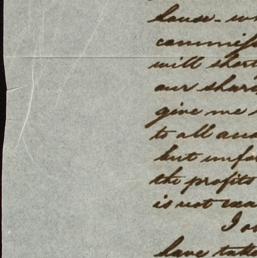 house - wh
commiss
will short
our shar
give me
to all and
but unfor
the profits
is not
I
have take